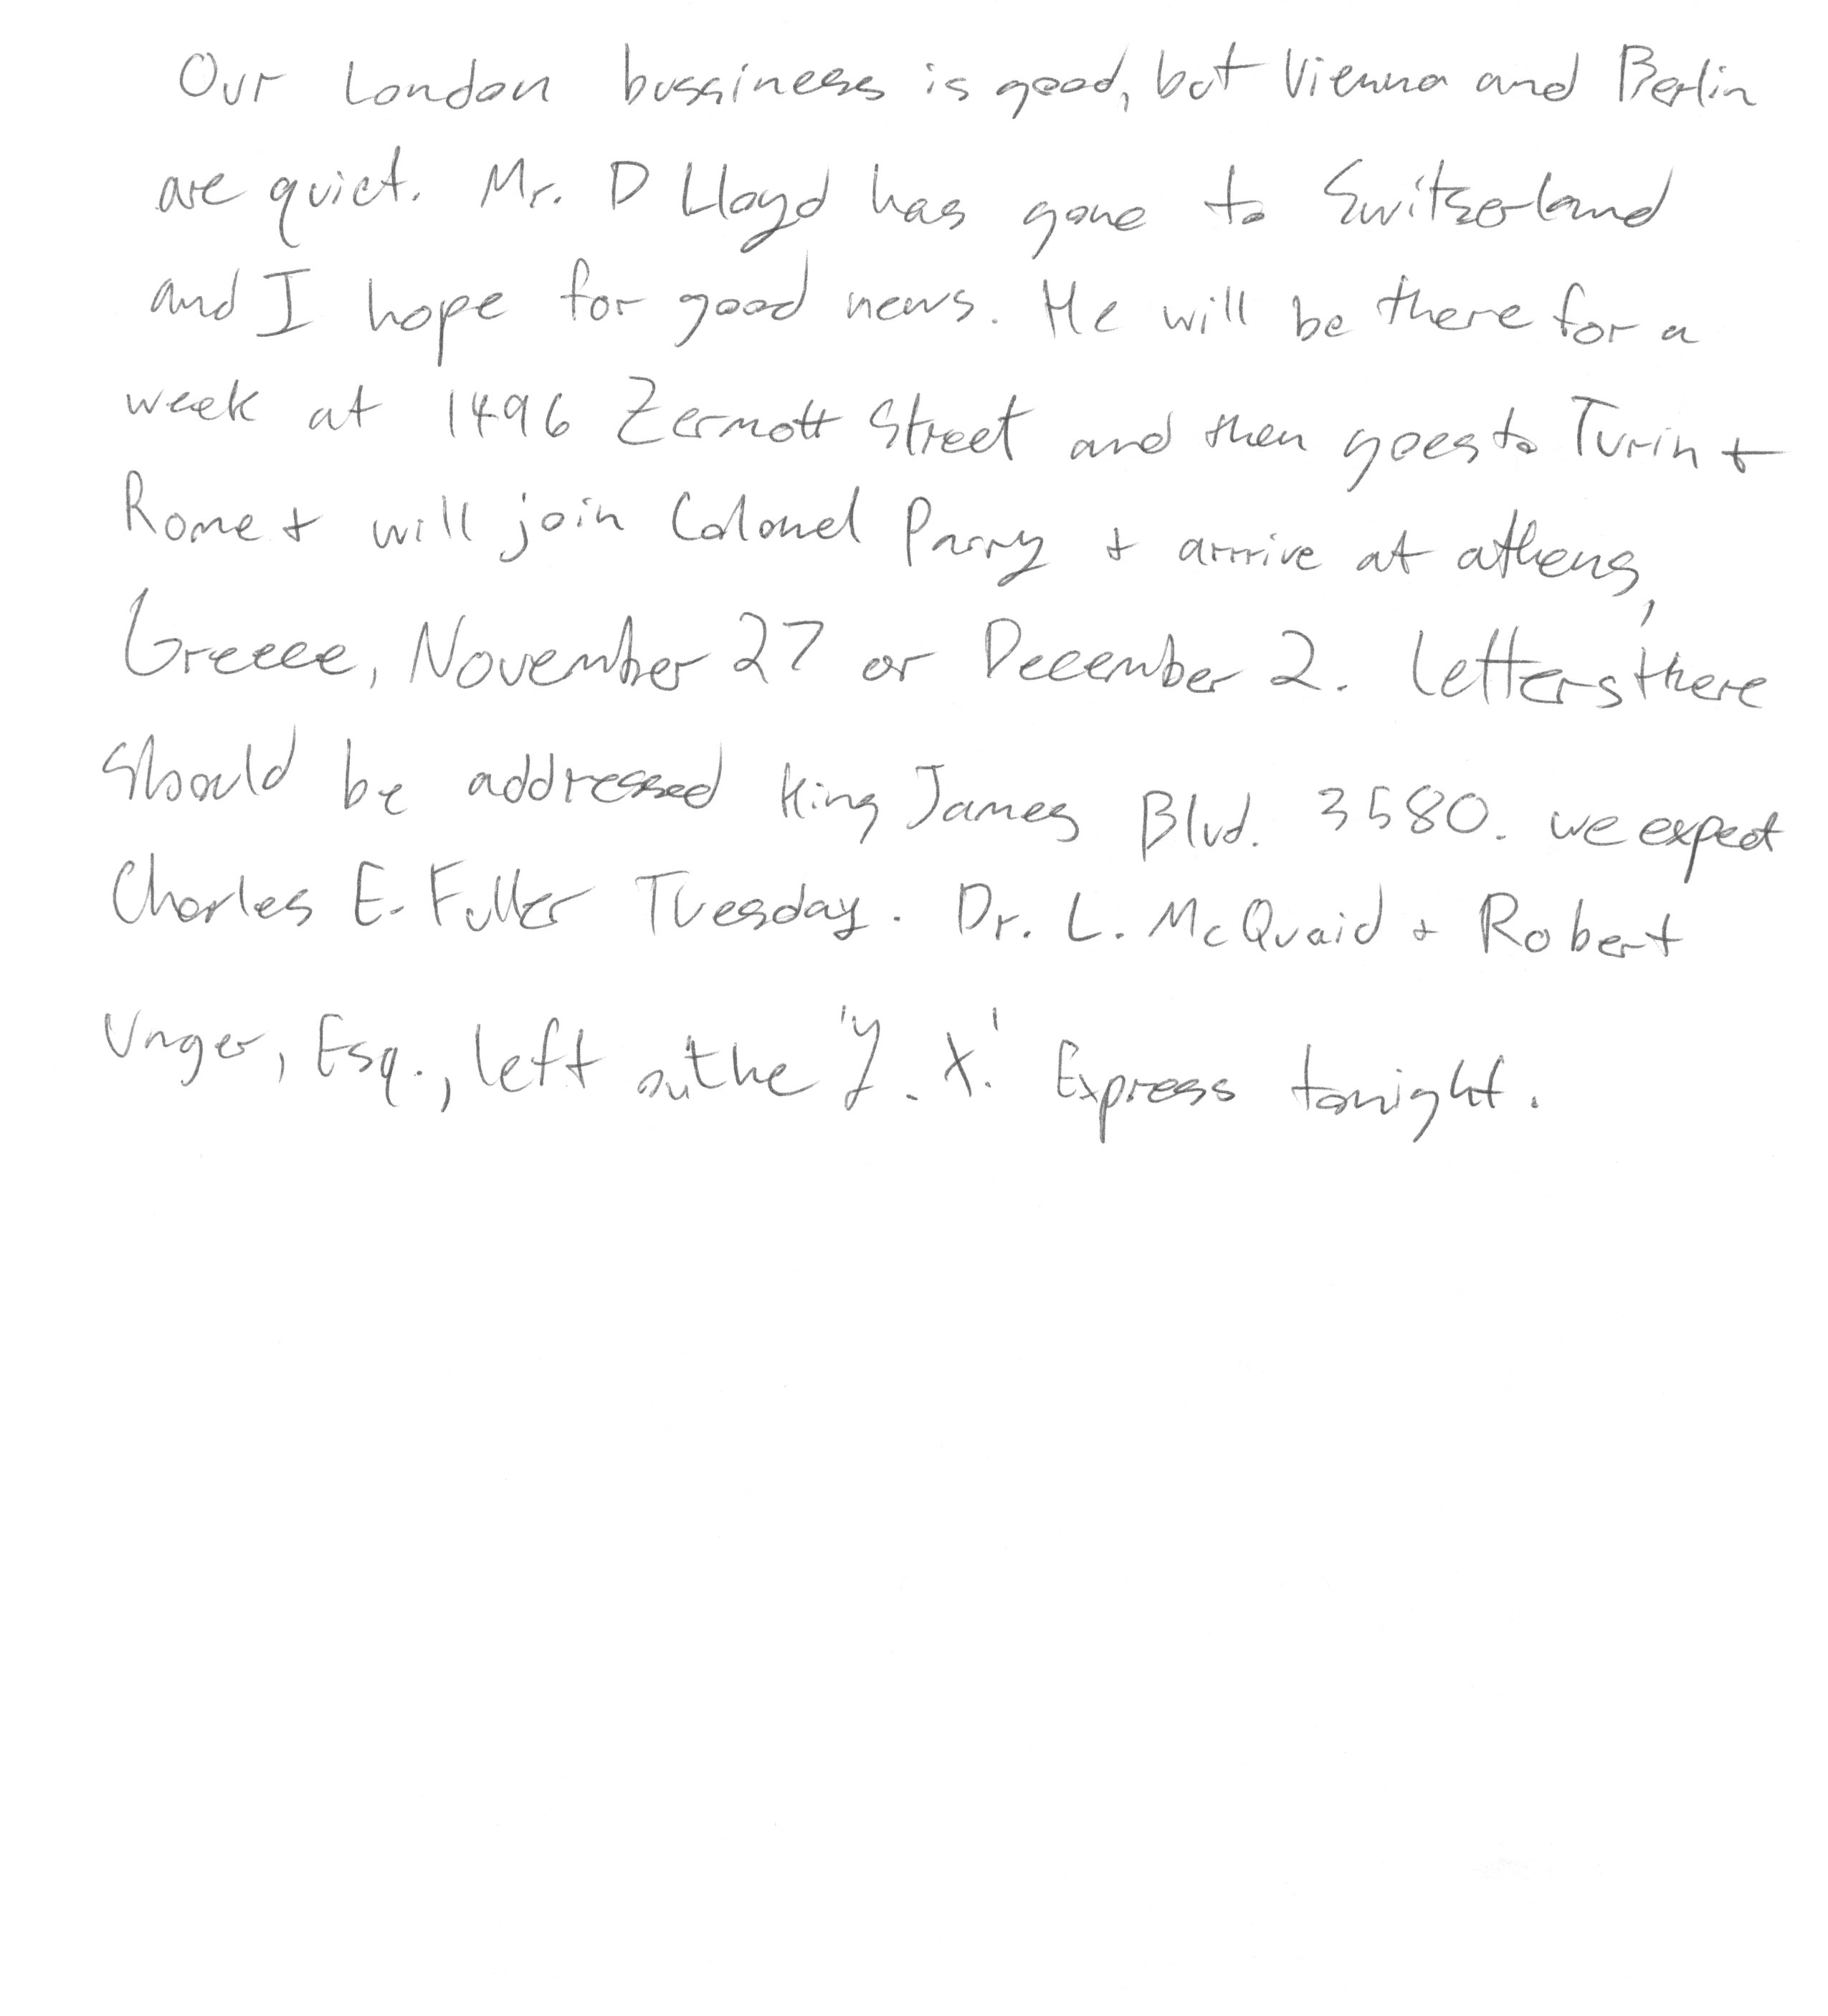 Our London bussiness is good, but Vienna and Berlin
are quiet. Mr. D Lloyd has gone to Switzerland
and I hope for good news. He will be there for a
week at 1496 Zermott Street and then goes to Turin +
Rome + will join Colonel Parry + arrive at athens,
Greece, November 27 or December 2. Letters there
Should be addressed King James Blvd. 3580. we expect
Charles E. Fuller Tuesday. Dr. L. McQuaid + Robert
Unger, Esq., left on the 'Y. X.' Express tonight.